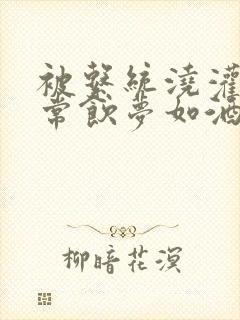 被繫統澆灌
常飲夢如酒
柳暗花溟